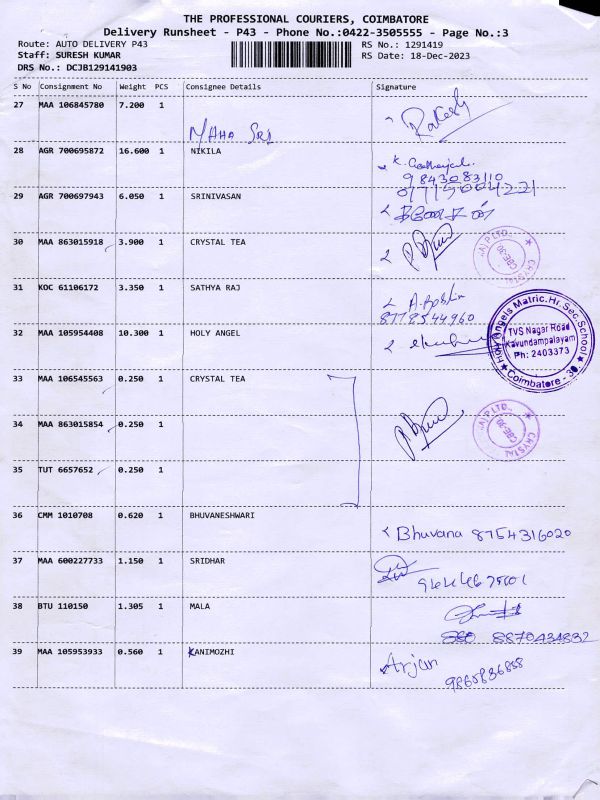 THE PROFESSIONAL COURIERS, COIMBATORE
Delivery Runsheet - P43 - Phone No.:0422-3505555 - Page No.:3
Route: AUTO DELIVERY P43 RS No.: 1291419
Staff: SURESH KUMAR RS Date: 18-Dec-2023
DRS No.: DCJB129141903
S No Consignment No Weight PCS Consignee Details Signature
27 MAA 106845780 7.200 1 Rakesh
MAHA SRI
28 AGR 700695872 16.600 1 NIKILA
9843083110
29 AGR 700697943 6.050 1 SRINIVASAN
30 MAA 863015918 3.900 1 CRYSTAL TEA
31 KOC 61106172 3.350 1 SATHYA RAJ
8778544960
32 MAA 105954408 10.300 1 HOLY ANGEL
Holy Angels Matric.Hr.Sec.School
TVS Nagar Road
Kavundampalayam
Ph: 2403373
Coimbatore - 30.
33 MAA 106545563 0.250 1 CRYSTAL TEA
34 MAA 863015854 0.250 1
35 TUT 6657652 0.250 1
36 CMM 1010708 0.620 1 BHUVANESHWARI
Bhuvana 8754316020
37 MAA 600227733 1.150 1 SRIDHAR
38 BTU 110150 1.305 1 MALA
8870434832
39 MAA 105953933 0.560 1 KANIMOZHI Arjan